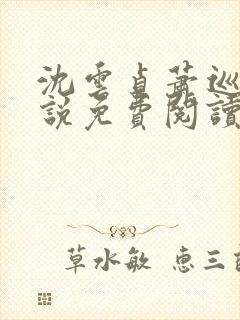 沈雲貞蕭巡
說免費閱讀
草水敏 惠三